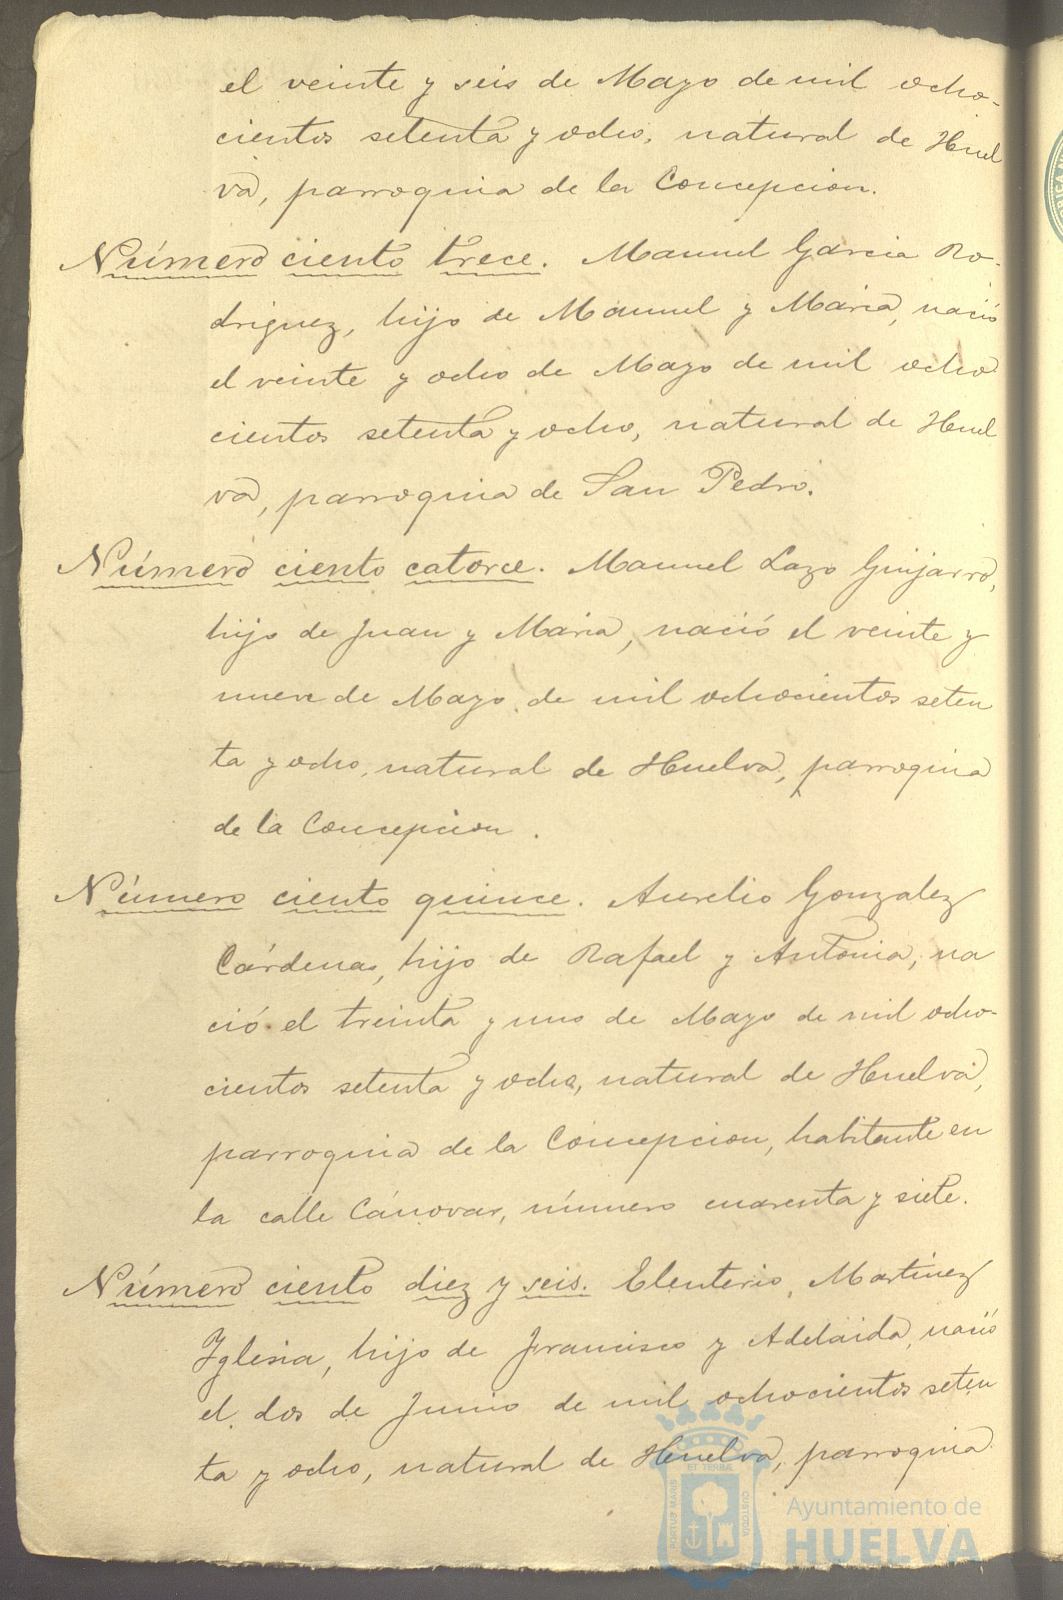 el veinte y seis de Mayo de mil ocho-
cientos setenta y ocho, natural de Huel
va, parroquia de la Concepcion.
Número ciento trece. Manuel Garcia Ro-
driguez, hijo de Manuel y Maria, nació
el veinte y ocho de Mayo de mil ocho
cientos setenta y ocho, natural de Huel
va, parroquia de San Pedro.
Número ciento catorce. Manuel Lazo Guijarro,
hijo de Juan y Maria, nació el veinte y
nueve de Mayo de mil ochocientos seten
ta y ocho, natural de Huelva, parroquia
de la Concepcion.
Número ciento quince. Aurelio Gonzalez
Cárdenas, hijo de Rafael y Antonia, na
ció el treinta y uno de Mayo de mil ocho-
cientos setenta y ocho, natural de Huelva,
parroquia de la Concepcion, habitante en
la calle Cánovas, número cuarenta y siete.
Número ciento diez y seis. Eleuterio Martinez
Yglesia, hijo de Francisco y Adelaida, nació
el dos de Junio de mil ochocientos seten
ta y ocho, natural de Huelva, parroquia
PORTUS MARIS ET TERRAE CUSTODIA
Ayuntamiento de
HUELVA